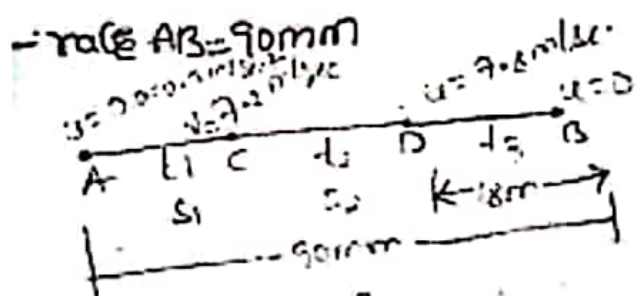 AB=90mm
v=7.2m/sec
u=7.2m/sec.
u=0
A t1 C t2 D t3 B
S1 S2 18m
90mm